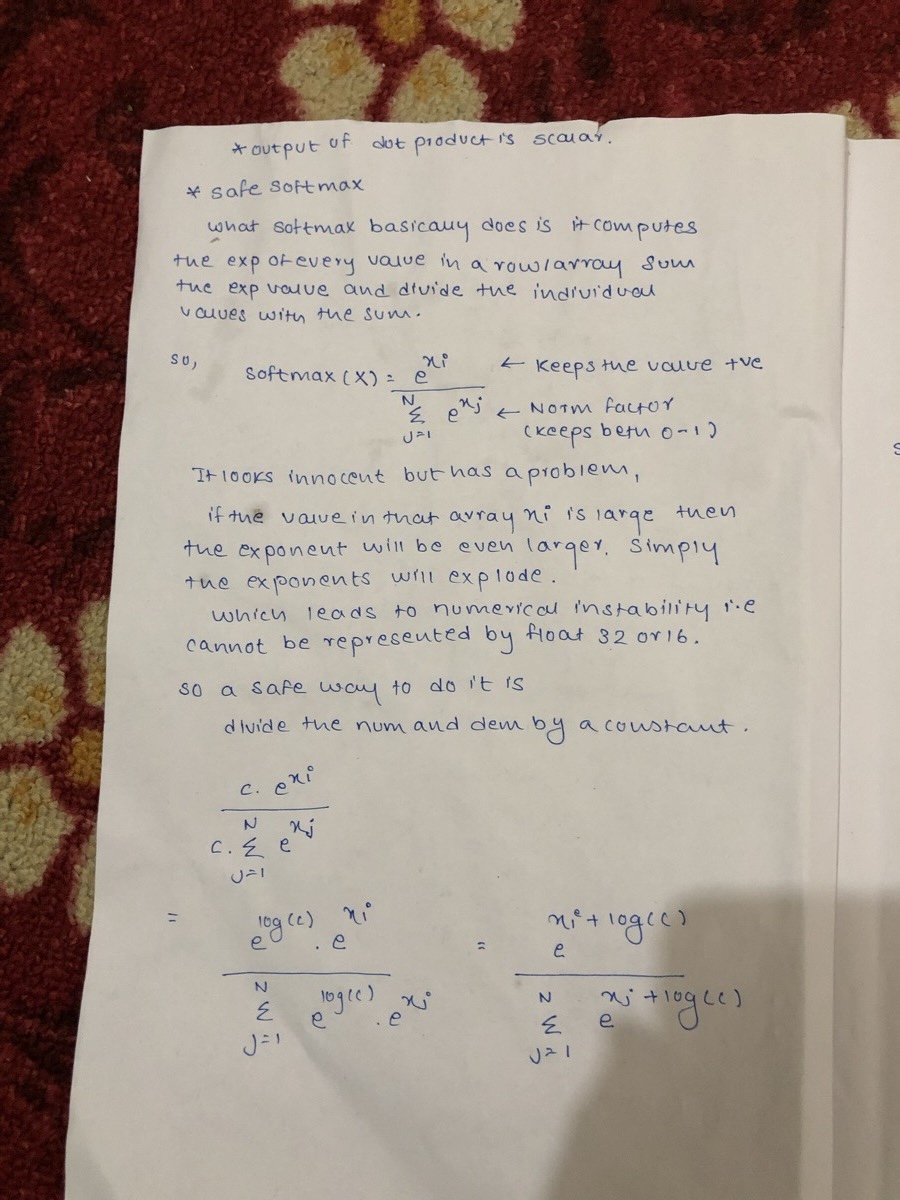 * output of dot product is scalar.
* safe softmax
what softmax basically does is it computes
the exp of every value in a row/array sum
the exp value and divide the individual
values with the sum.
so,
softmax(x) = e^{xi} / Σ_{j=1}^{N} e^{xj}
← Keeps the value +ve
← Norm factor
(keeps betn 0-1)
It looks innocent but has a problem,
if the value in that array xi is large then
the exponent will be even larger. Simply
the exponents will explode.
which leads to numerical instability i.e
cannot be represented by float 32 or 16.
so a safe way to do it is
divide the num and dem by a constant.
c. e^{xi} / c. Σ_{j=1}^{N} e^{xj}
= e^{log(c)} . e^{xi} / Σ_{j=1}^{N} e^{log(c)} . e^{xj} = e^{xi + log(c)} / Σ_{j=1}^{N} e^{xj + log(c)}